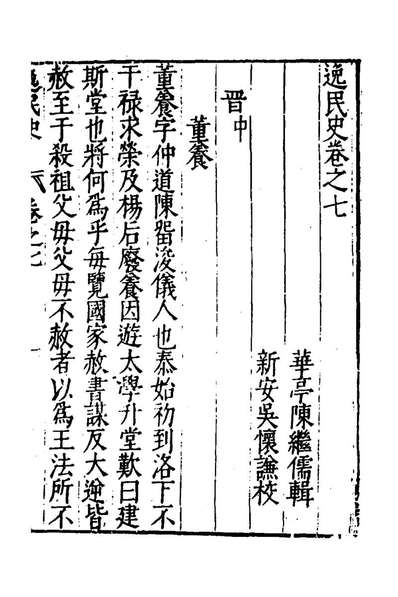 逸民史卷之七
華亭陳繼儒輯
新安吳懷謙校
晋中
董養
董養字仲道陳留浚儀人也泰始初到洛下不
干禄求榮及楊后廢養因遊太學升堂歎曰建
斯堂也將何爲乎毎覽國家赦書謀反大逆皆
赦至于殺祖父母父母不赦者以爲王法所不
逸民史
卷之七
一